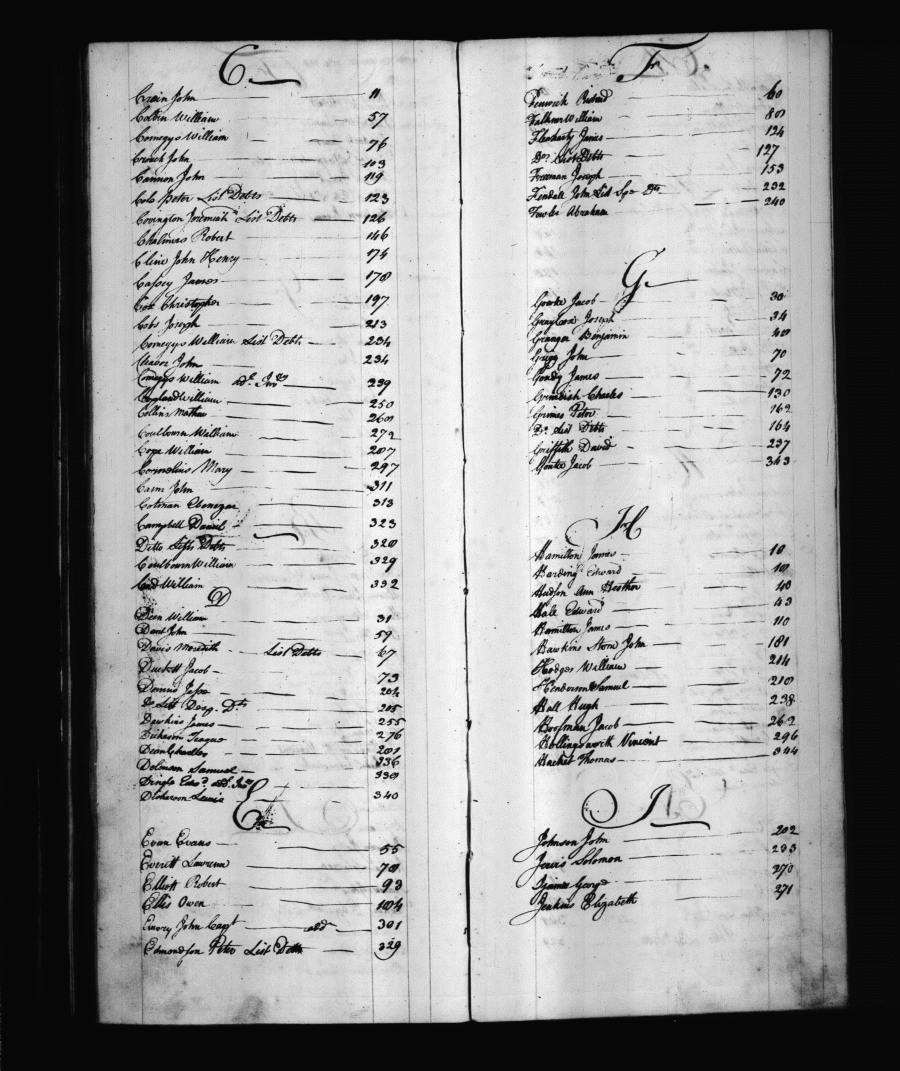 C
Crain John 11
Colvin William 57
Comegys William 76
Crouch John 103
Cannon John 119
Cole Peter List Debts 123
Covington Jeremiah List Debts 126
Chalmers Robert 146
Cline John Henry 174
Causey James 178
Cox Christopher 197
Cobs Joseph 213
Comegys William List Debts 234
Cleaver John 234
Comegys William ad. Inv. 239
Copland William 250
Collins Mathew 260
Coulbourn William 272
Cope William 287
Cornelius Mary 297
Cann John 311
Cotman Ebenezer 313
Campbell Daniel 323
Ditto List Debts 328
Coulbourn William 329
William 332
D
Dean William 31
Dant John 59
Davis Meredith List Debts 67
Duckett Jacob 73
Dennis Jesse 204
Do List Desp. Dts 205
Dawkins James 255
Dickason Teague 276
Dean Charles 281
Dolman Samuel 336
Dingle Edwd. add. Invy 338
Dickerson Lewis 340
E
Evan Evans 55
Everitt Lawrence 78
Elliott Robert 93
Ellis Owen 184
Emory John Capt add 301
Edmondson Peter List Debts 329
F
Fenwick Richard 60
Falkner William 80
Flenharty James 124
Do. List Debts 127
Freeman Joseph 153
Kendall John List Spe Dts. 232
Fowler Abraham 240
G
Gonte Jacob 30
Grayless Joseph 34
Granger Benjamin 40
Gregg John 70
Gondy James 72
Cavendish Charles 130
Grimes Peter 162
Do. List Debts 164
Griffith David 237
Gonte Jacob 343
H
Hamilton James 10
Harding Edward 18
Hudson Ann Heather 40
Hale Edward 43
Hamilton James 110
Hawkins Stone John 181
Hodges William 214
Henderson Samuel 218
Hall Hugh 238
Hoofman Jacob 262
Hollingsworth Vincent 296
Hacket Thomas 344
I
Johnson John 202
Jervis Solomon 233
James George 270
Jenkins Elizabeth 271